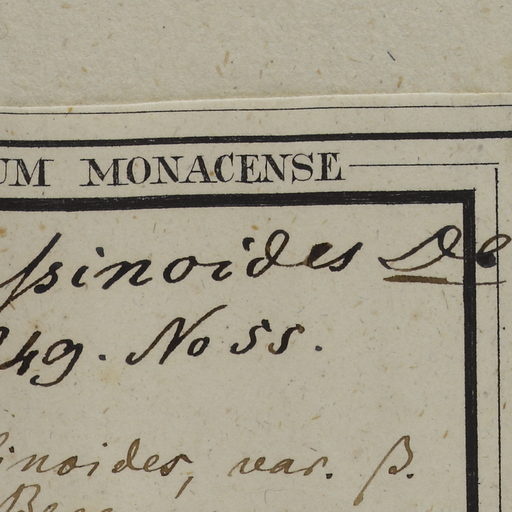 UM MONACENSE
ſsinoides De
49. No 55.
inoides, var. β.